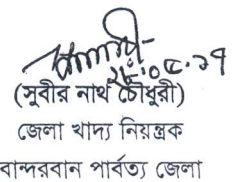 ২৮.০৫.১৭
(সুবীর নাথ চৌধুরী)
জেলা খাদ্য নিয়ন্ত্রক
বান্দরবান পার্বত্য জেলা